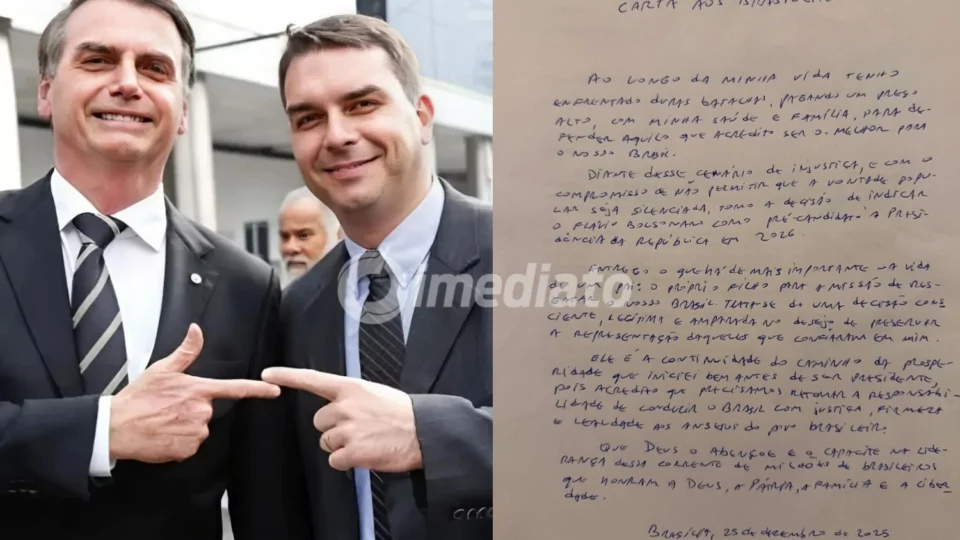 imediato
CARTA AOS BRASILEIROS
AO LONGO DA MINHA VIDA TENHO
ENFRENTADO DURAS BATALHAS, PAGANDO UM PREÇO
ALTO, COM MINHA SAÚDE E FAMÍLIA, PARA DE-
FENDER AQUILO QUE ACREDITO SER O MELHOR PARA
O NOSSO BRASIL.
DIANTE DESSE CENÁRIO DE INJUSTIÇA, E COM O
COMPROMISSO DE NÃO PERMITIR QUE A VONTADE POPU-
LAR SEJA SILENCIADA, TOMO A DECISÃO DE INDICAR
O FLÁVIO BOLSONARO COMO PRÉ-CANDIDATO À PRESI-
DÊNCIA DA REPÚBLICA EM 2026.
ENTREGO O QUE HÁ DE MAIS IMPORTANTE NA VIDA
DE UM PAI: O PRÓPRIO FILHO PARA A MISSÃO DE RES-
GATAR O NOSSO BRASIL. TRATA-SE DE UMA DECISÃO CONS-
CIENTE, LEGÍTIMA E AMPARADA NO DESEJO DE PRESERVAR
A REPRESENTAÇÃO DAQUELES QUE CONFIARAM EM MIM.
ELE É A CONTINUIDADE DO CAMINHO DA PROSPE-
RIDADE QUE INICIEI BEM ANTES DE SER PRESIDENTE,
POIS ACREDITO QUE PRECISAMOS RETOMAR A RESPONSABI-
LIDADE DE CONDUZIR O BRASIL COM JUSTIÇA, FIRMEZA
E LEALDADE AOS ANSEIOS DO POVO BRASILEIRO.
QUE DEUS O ABENÇOE E O CAPACITE NA LIDE-
RANÇA DESSA CORRENTE DE MILHÕES DE BRASILEIROS
QUE HONRAM A DEUS, A PÁTRIA, A FAMÍLIA E A LIBER-
DADE.
BRASÍLIA, 25 DE DEZEMBRO DE 2025